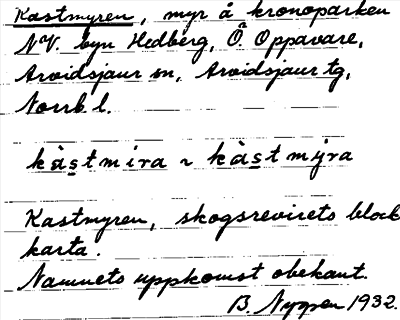 Kastmyren, myr å kronoparken
NV. byn Hedberg, Ö. Oppavare,
Arvidsjaur sn, Arvidsjaur tg,
Norrb l.
kàstmira ~ kàstmỳra
Kastmyren, skogsrevirets block
karta.
Namnets uppkomst obekant.
B. Nyppen 1932.